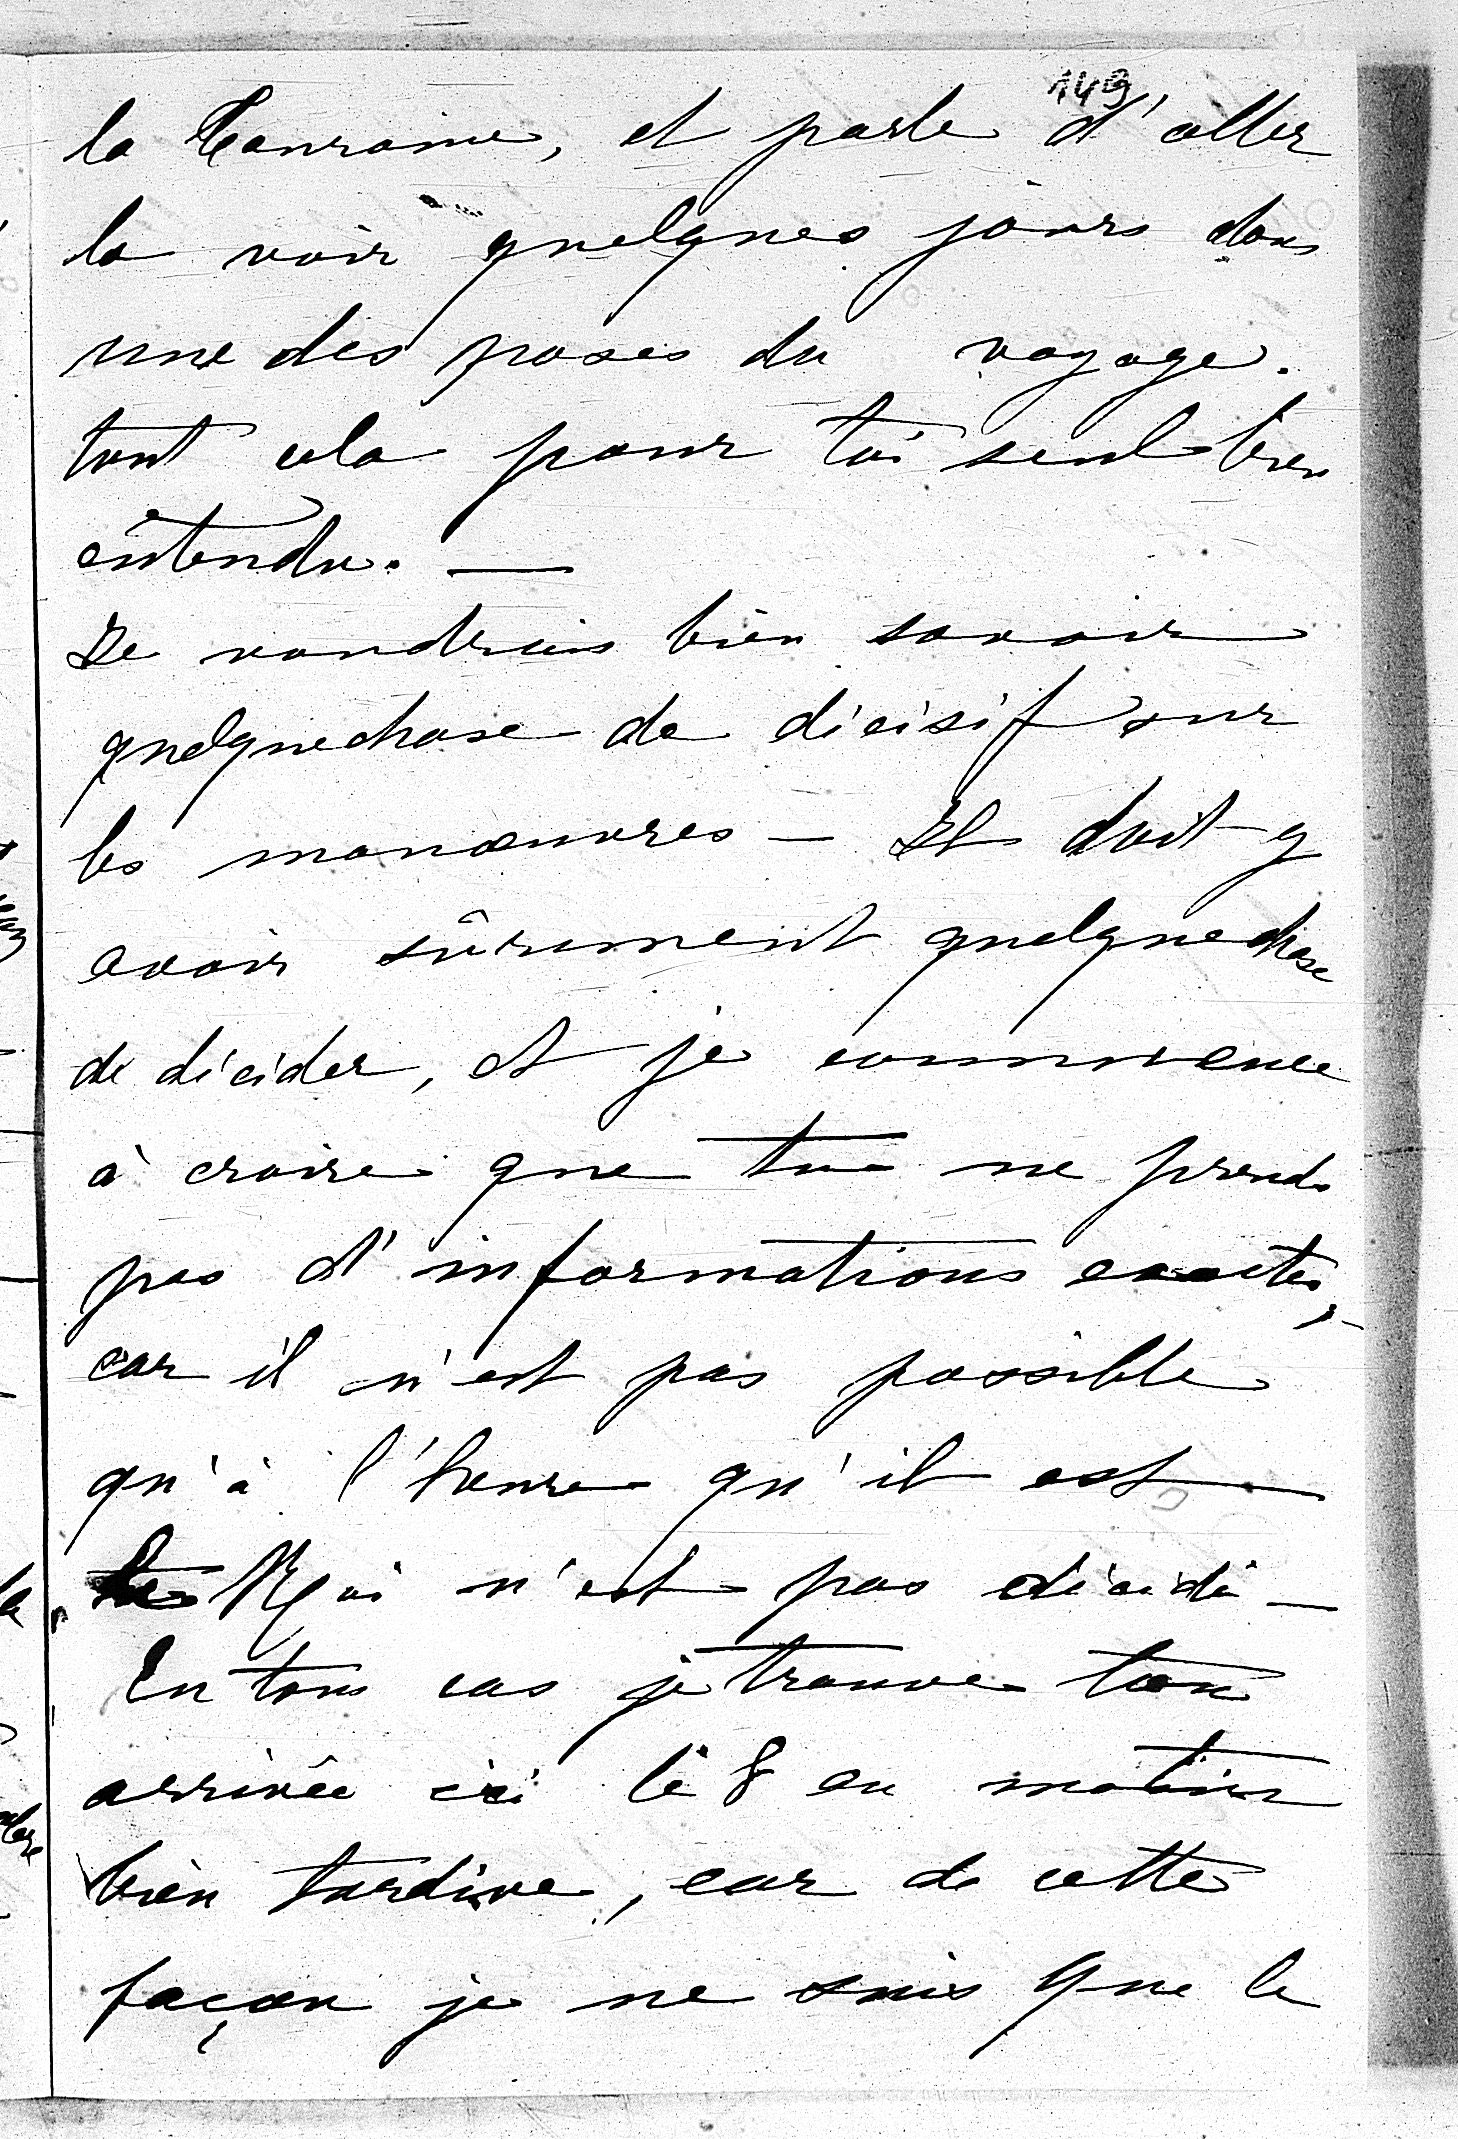 149
la Touraine, et parle d'aller
la voir quelques jours dans
une des poses du voyage.
tout cela pour toi seul bien
entendu. —
Je voudrais bien savoir
quelquechose de décisif sur
les manœuvres — Il doit y
avoir sûrement quelquechose
de décider, et je commence
à croire que tu ne prends
pas d'informations exactes,
car il n'est pas possible
qu'à l'heure qu'il est
le Roi n'est pas décidé —
En tous cas je trouve ton
arrivée ici le 8 au matin
bien tardive, car de cette
façon je ne suis que le